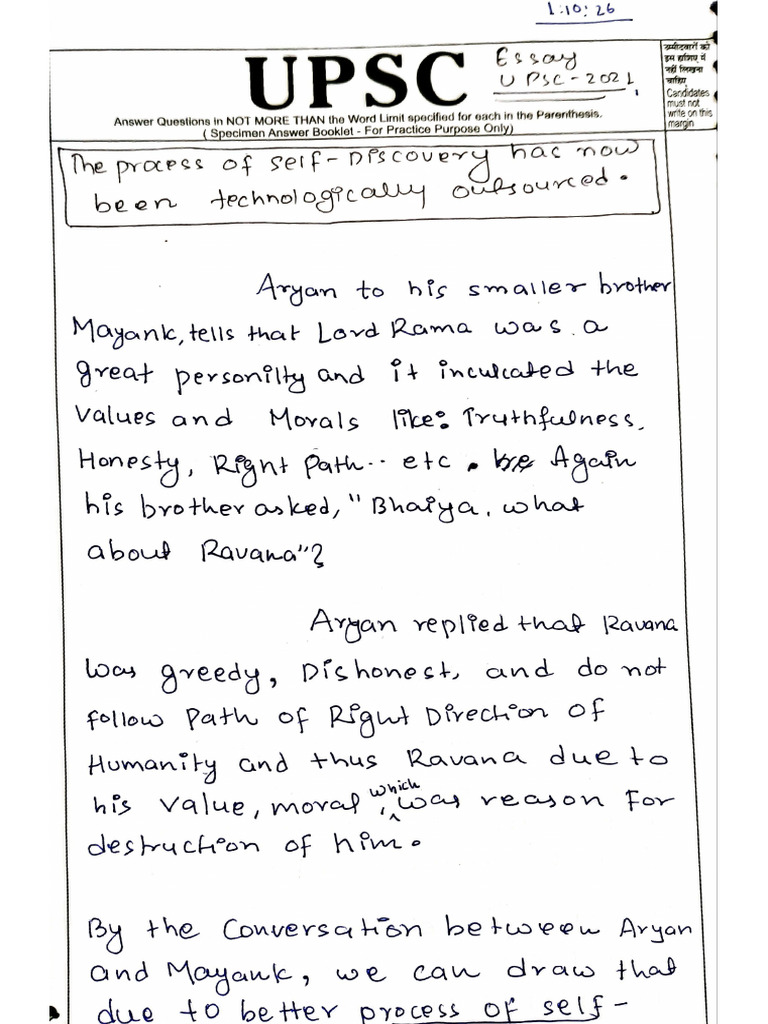 1:10:26
UPSC
Essay
UPSC-2021
Answer Questions in NOT MORE THAN the Word Limit specified for each in the Parenthesis.
( Specimen Answer Booklet - For Practice Purpose Only)
उम्मीदवारों को
इस हाशिए में
नहीं लिखना
चाहिए
Candidates
must not
write on this
margin
The process of self-Discovery has now
been technologically outsourced.
Aryan to his smaller brother
Mayank, tells that Lord Rama was a
great personilty and it inculcated the
values and Morals like: Truthfulness,
Honesty, Right Path.. etc. Again
his brother asked, "Bhaiya, what
about Ravana"?
Aryan replied that Ravana
was greedy, Dishonest, and do not
follow Path of Right Direction of
Humanity and thus Ravana due to
his value, moral, which was reason for
destruction of him.
By the conversation between Aryan
and Mayank, we can draw that
due to better process of self-